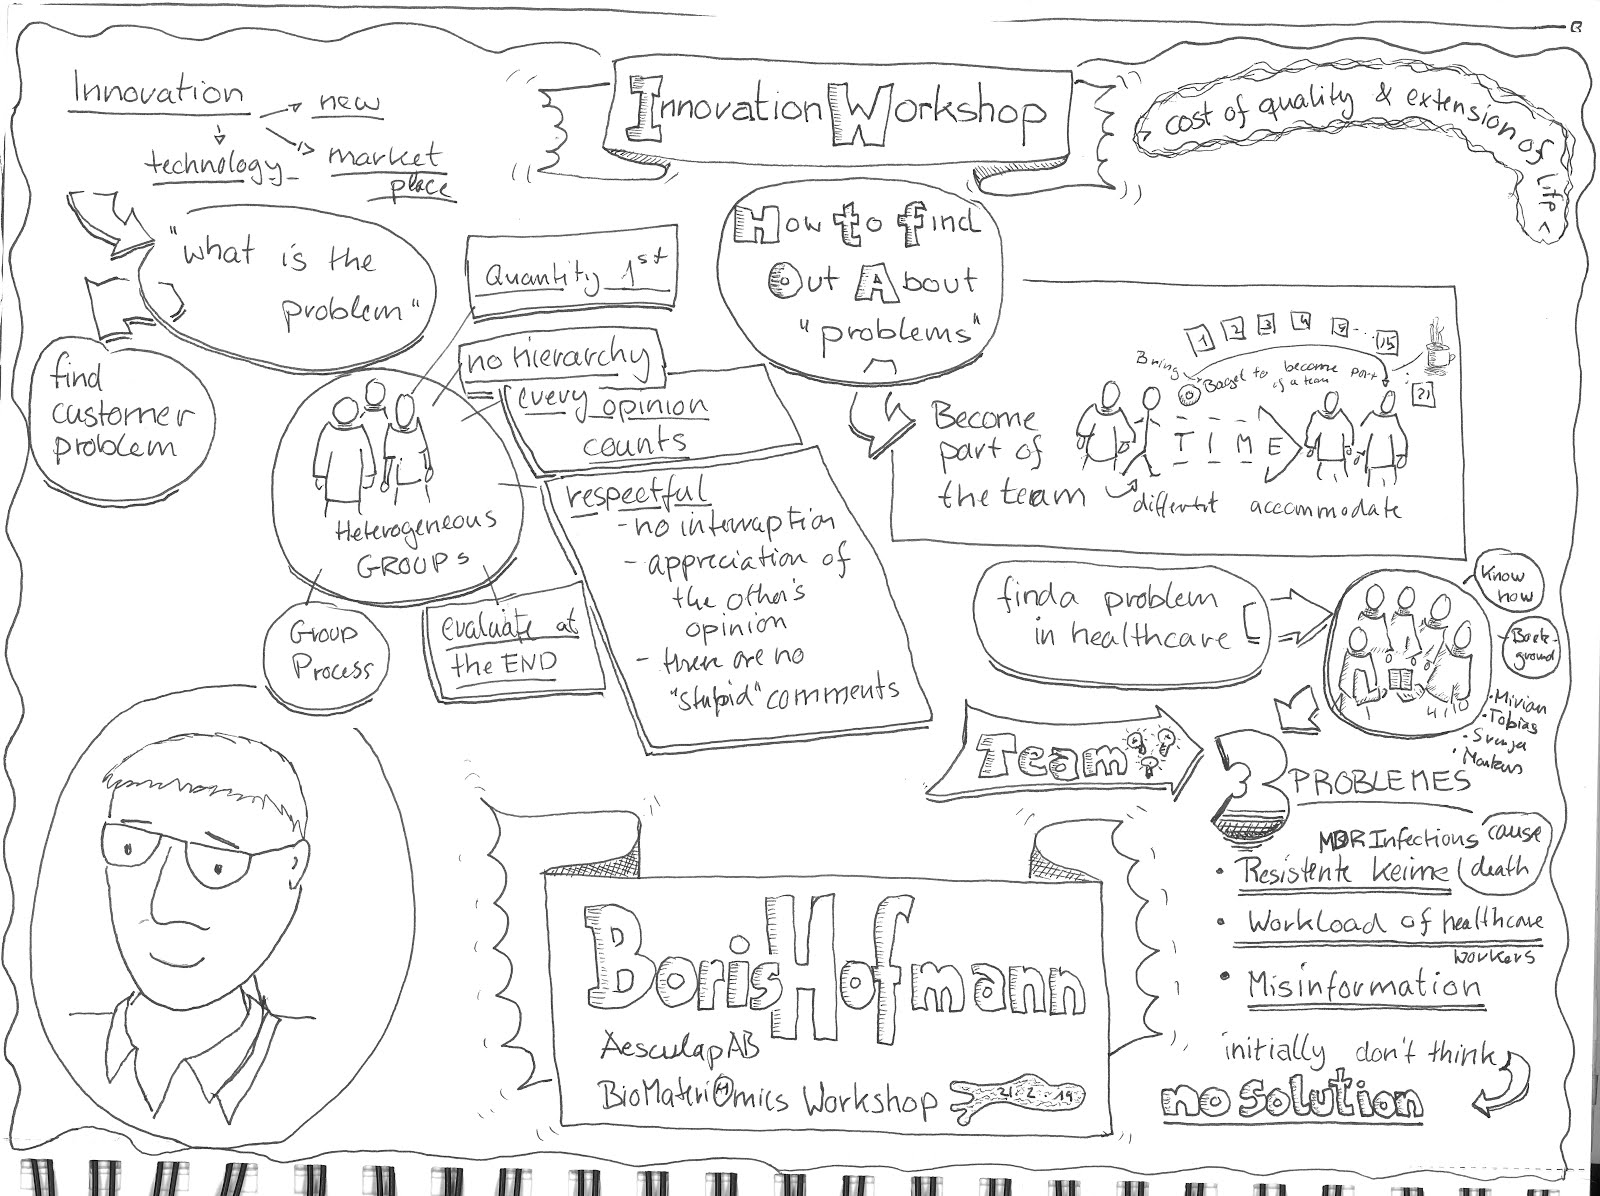 Innovation Workshop
Innovation
new
technology
market
place
cost of quality & extension of life
"what is the
problem"
find
customer
problem
Quantity 1st
no Hierarchy
every opinion
counts
respectful
- no interruption
- appreciation of
the other's
opinion
- there are no
"stupid" comments
Heterogeneous
GROUPS
Group
Process
evaluate at
the END
How to find
Out About
"problems"
Become
part of
the team
1 2 3 4 5 ... 15
21
Bring Bagel to become part
of a team
TIME
different accommodate
find a problem
in healthcare
Know
how
Back-
ground
• Mirian
• Tobias
• Svenja
• Markus
Team
3 PROBLEMES
MDR Infections cause
death
• Resistente Keime
• Workload of healthcare
workers
• Misinformation
initially don't think
no solution
Boris Hofmann
Aesculap AB
BioMateriOmics Workshop
21.2.19